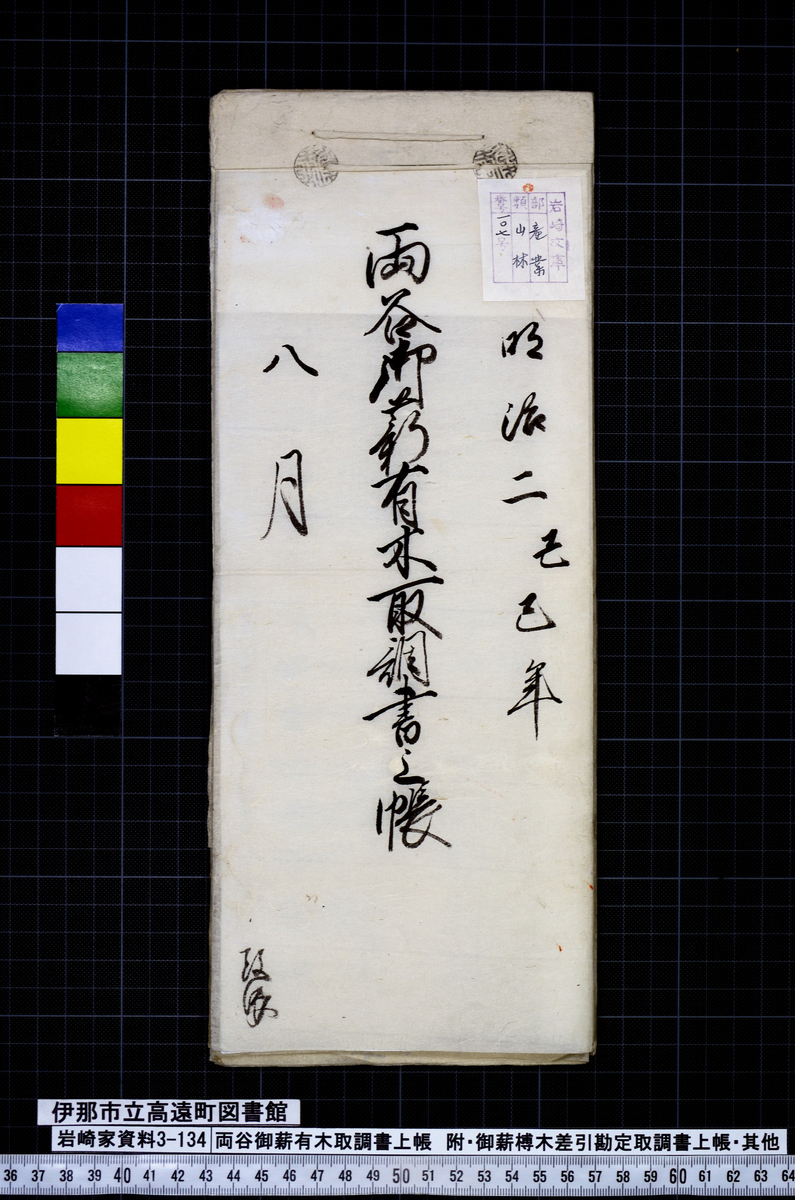 岩崎文庫
部 産業
類 山林
番号 一〇七号
明治二己巳年
両谷御薪有木取調書上帳
八月
伊那市立高遠町図書館
岩崎家資料3-134 両谷御薪有木取調書上帳 附・御薪榑木差引勘定取調書上帳・其他
36 37 38 39 40 41 42 43 44 45 46 47 48 49 50 51 52 53 54 55 56 57 58 59 60 61 62 63 64